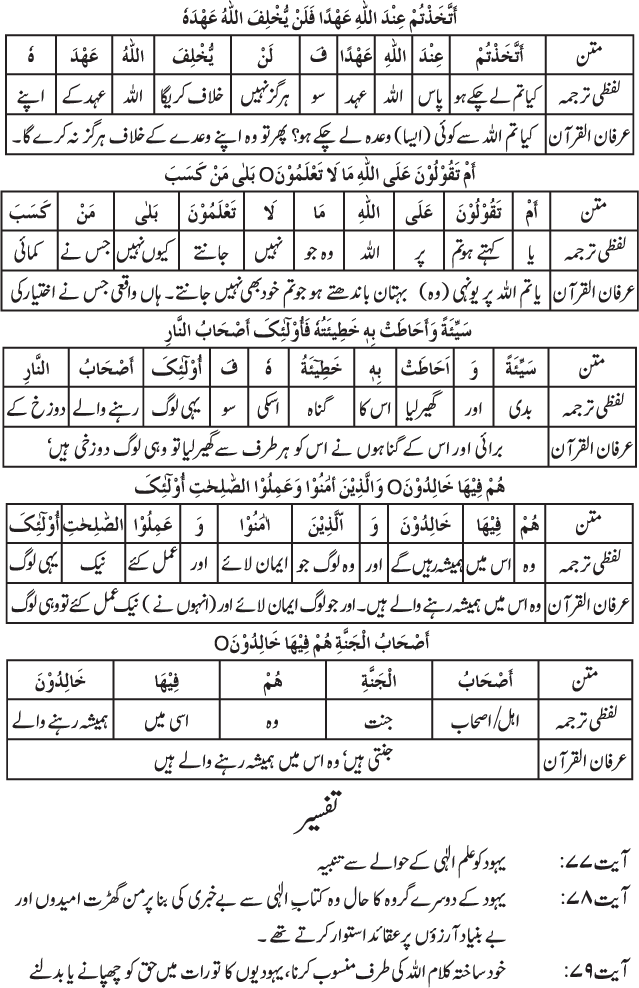 أَتَّخَذْتُمْ عِنْدَ اللهِ عَهْدًا فَلَنْ يُّخْلِفَ اللهُ عَهْدَهٗ
متن أَتَّخَذْتُمْ عِنْدَ اللهِ عَهْدًا فَ لَنْ يُّخْلِفَ اللهُ عَهْدَ هٗ
لفظی ترجمہ کیا تم لے چکے ہو پاس اللہ عہد سو ہرگز نہیں خلاف کریگا اللہ عہد کے اپنے
عرفان القرآن کیا تم اللہ سے کوئی (ایسا) وعدہ لے چکے ہو؟ پھر تو وہ اپنے وعدے کے خلاف ہرگز نہ کرے گا۔
أَمْ تَقُوْلُوْنَ عَلَی اللهِ مَا لَا تَعْلَمُوْنَO بَلٰی مَنْ كَسَبَ
متن أَمْ تَقُوْلُوْنَ عَلَی اللهِ مَا لَا تَعْلَمُوْنَ بَلٰی مَنْ كَسَبَ
لفظی ترجمہ یا کہتے ہو تم پر اللہ وہ جو نہیں جانتے کیوں نہیں جس نے کمائی
عرفان القرآن یا تم اللہ پر یونہی (وہ) بہتان باندھتے ہو جو تم خود بھی نہیں جانتے۔ ہاں واقعی جس نے اختیار کی
سَيِّئَةً وَ أَحَاطَتْ بِهٖ خَطِيْئَتُهٗ فَأُوْلٰٓئِکَ أَصْحَابُ النَّارِ
متن سَيِّئَةً وَ اَحَاطَتْ بِهٖ خَطِيْٓئَةُ هٗ فَ أُوْلٰٓئِکَ أَصْحَابُ النَّارِ
لفظی ترجمہ بدی اور گھیر لیا اس کا گناہ اسکی سو یہی لوگ رہنے والے دوزخ کے
عرفان القرآن برائی اور اس کے گناہوں نے اس کو ہر طرف سے گھیر لیا تو وہی لوگ دوزخی ہیں‘
هُمْ فِيْهَا خَالِدُوْنَO وَالَّذِيْنَ اٰمَنُوْا وَعَمِلُوا الصّٰلِحٰتِ أُوْلٰٓئِکَ
متن هُمْ فِيْهَا خَالِدُوْنَ وَ الَّذِيْنَ اٰمَنُوْا وَ عَمِلُوْا الصّٰلِحٰتِ أُوْلٰٓئِکَ
لفظی ترجمہ وہ اس میں ہمیشہ رہیں گے اور وہ لوگ جو ایمان لائے اور عمل کئے نیک یہی لوگ
عرفان القرآن وہ اس میں ہمیشہ رہنے والے ہیں۔ اور جو لوگ ایمان لائے اور (انہوں نے) نیک عمل کئے تو وہی لوگ
أَصْحَابُ الْجَنَّةِ هُمْ فِيْهَا خَالِدُوْنَO
متن أَصْحَابُ الْجَنَّةِ هُمْ فِيْهَا خَالِدُوْنَ
لفظی ترجمہ اہل/اصحاب جنت وہ اسی میں ہمیشہ رہنے والے
عرفان القرآن جنتی ہیں‘ وہ اس میں ہمیشہ رہنے والے ہیں
تفسیر
آیت ۷۷: یہود کو علم الٰہی کے حوالے سے تنبیہ
آیت ۷۸: یہود کے دوسرے گروہ کا حال وہ کتابِ الٰہی سے بے خبری کی بنا پر من گھڑت امیدوں اور
بے بنیاد آرزؤں پر عقائد استوار کرتے تھے۔
آیت ۷۹: خود ساختہ کلام اللہ کی طرف منسوب کرنا، یہودیوں کا تورات میں حق کو چھپانے یا بدلنے